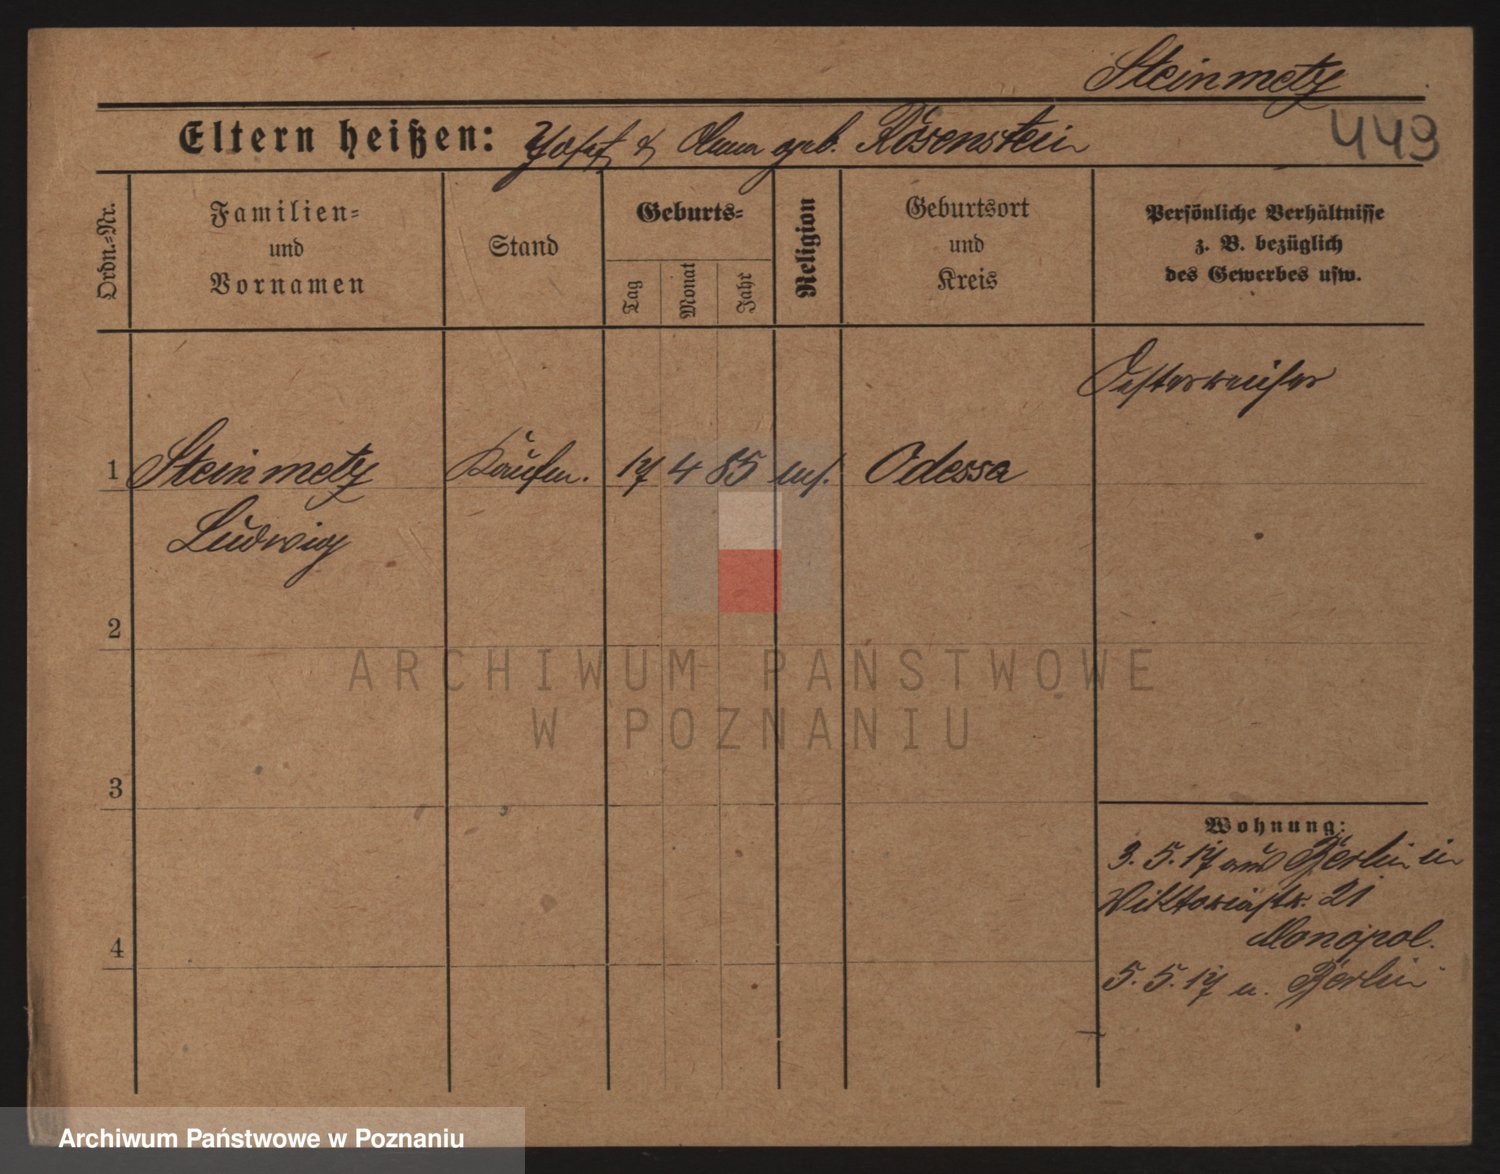 Steinmetz
449
Eltern heißen: Josef & Anna geb. Rosenstein
Ordn.-Nr.
Familien-
und
Vornamen
Stand
Geburts-
Tag
Monat
Jahr
Religion
Geburtsort
und
Kreis
Persönliche Verhältnisse
z. B. bezüglich
des Gewerbes usw.
Oesterreicher
1 Steinmetz Kaufm. 17 4 85 Odessa
Ludwig
2
ARCHIWUM PAŃSTWOWE
W POZNANIU
3
Wohnung:
3. 5. 17 aus Berlin in
Viktoriastr. 21
Monopol.
4
5. 5. 17 n. Berlin
Archiwum Państwowe w Poznaniu